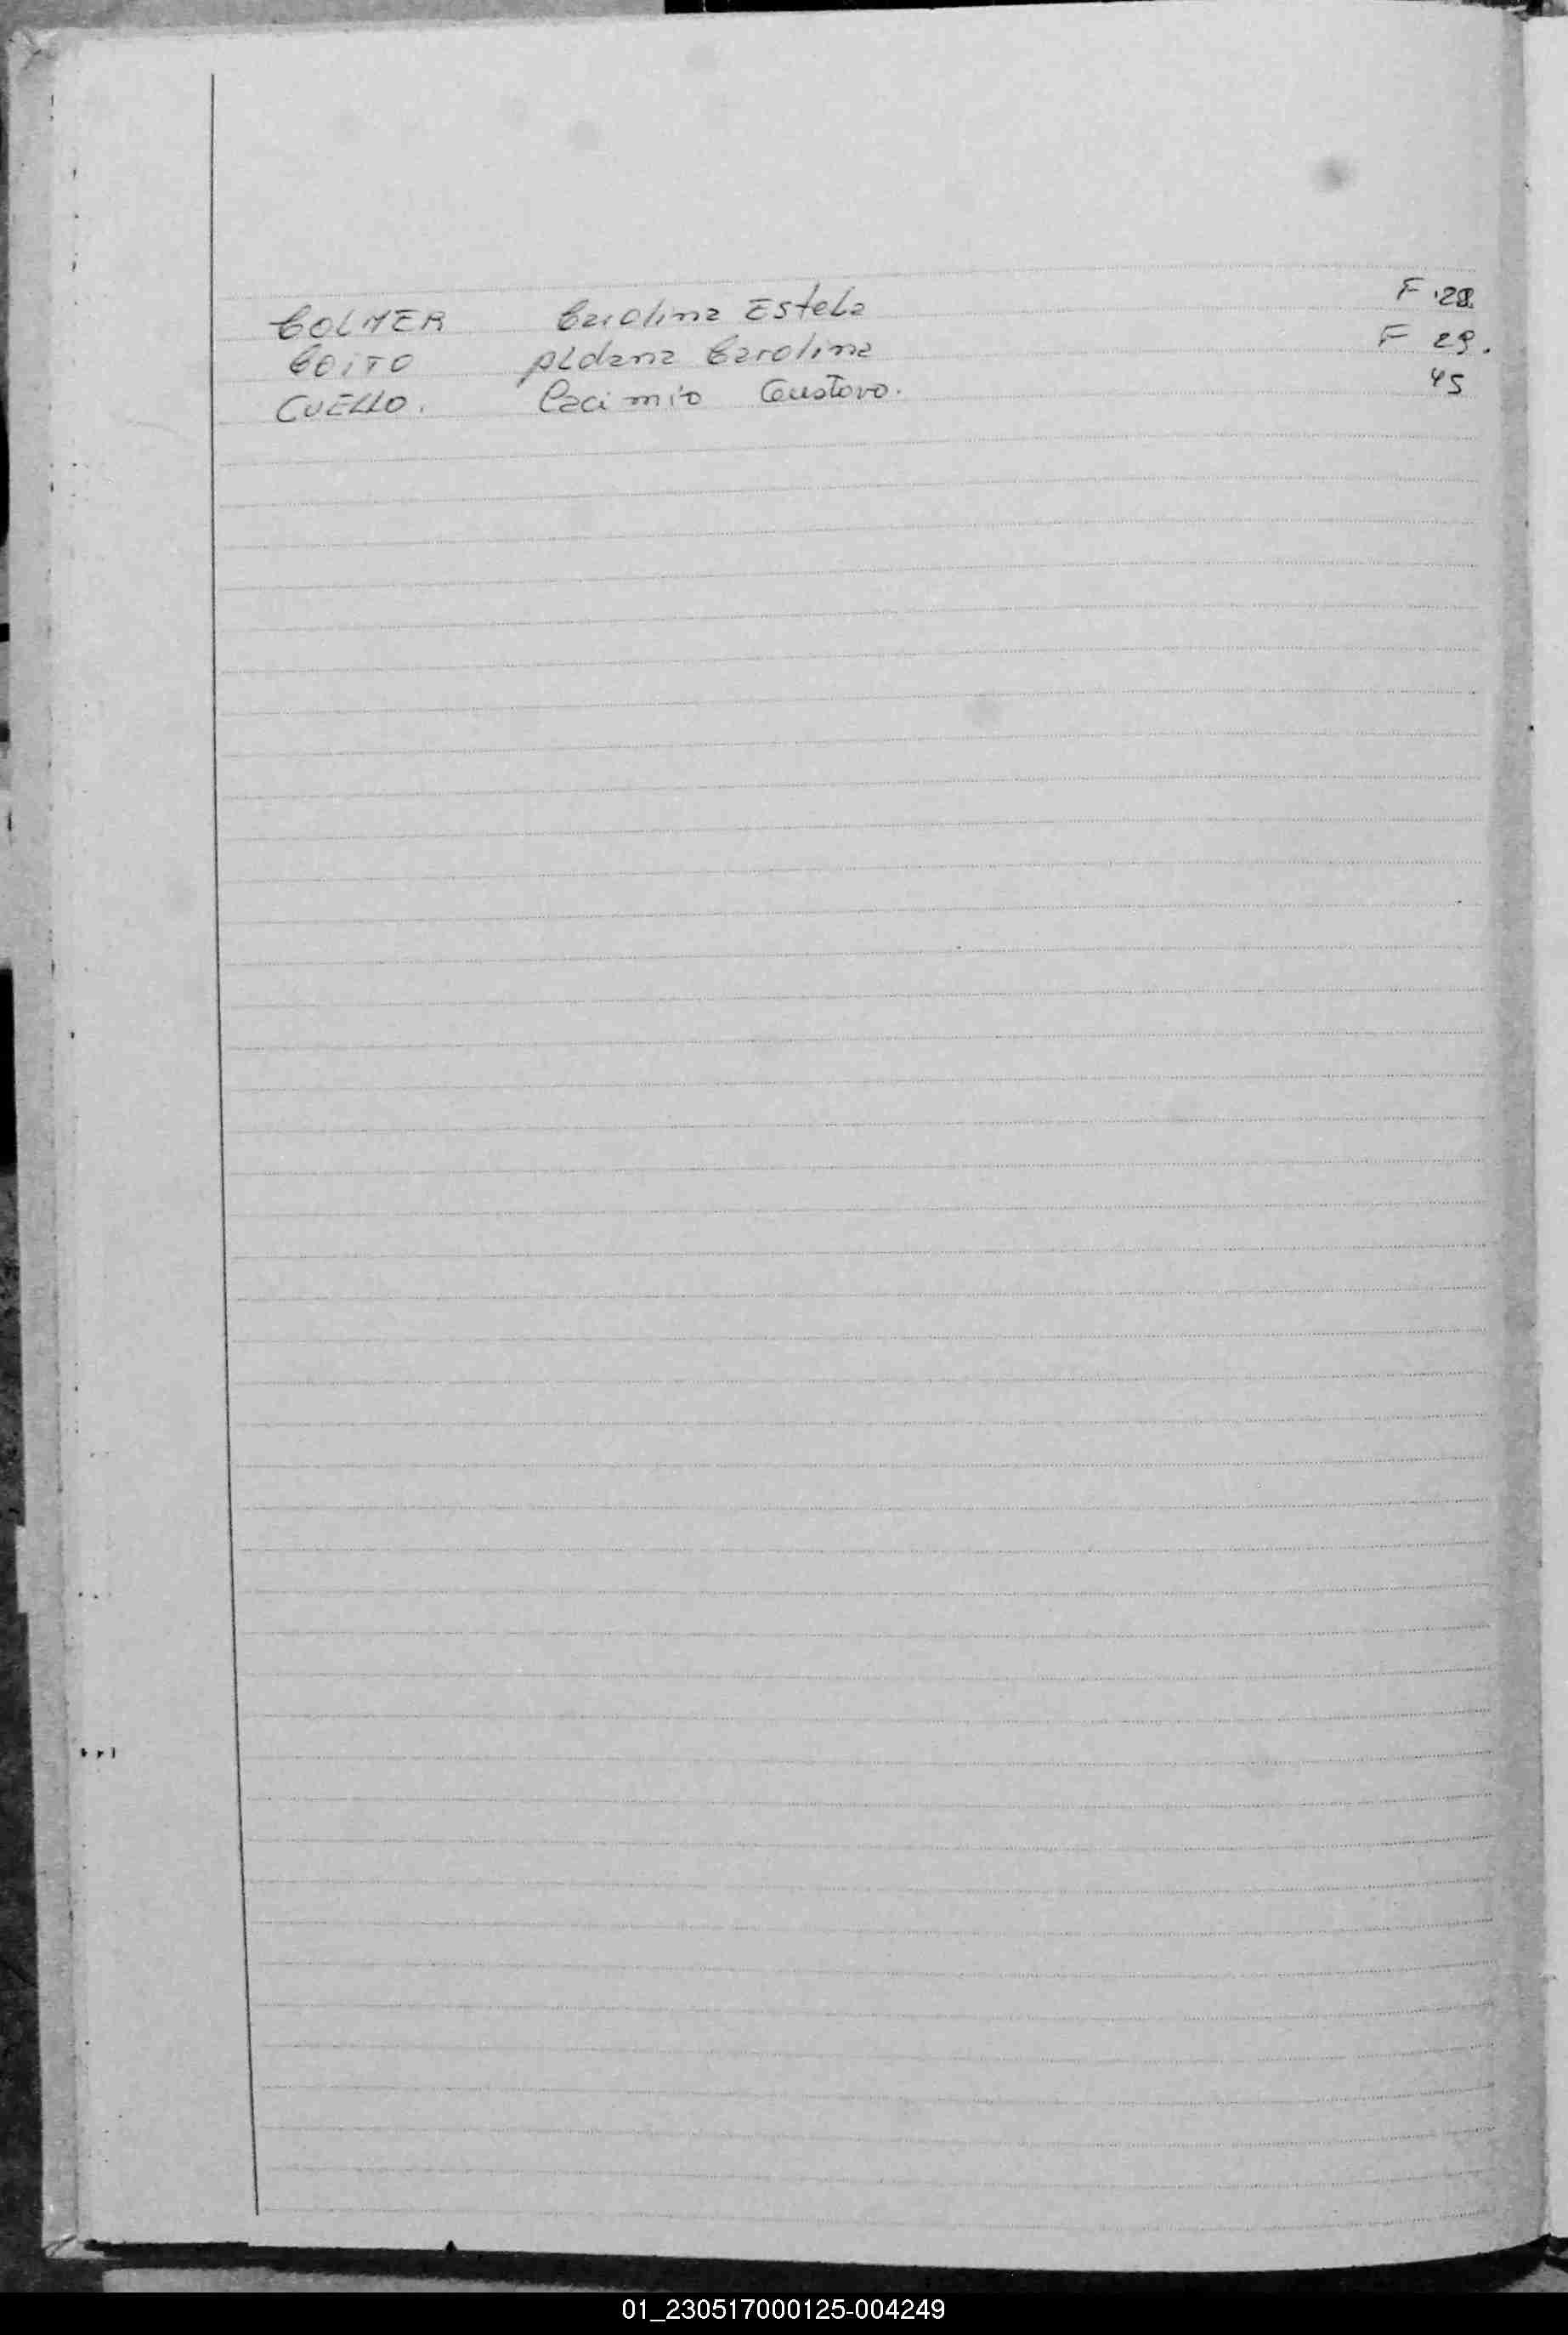 COLMER Carolina Estela F 28
COITO Aldana Carolina F 29.
CUELLO. Gustavo. 45
01_230517000125-004249